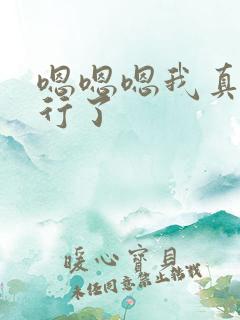 嗯嗯嗯我真
行了
暖心宝贝
未经同意禁止转载